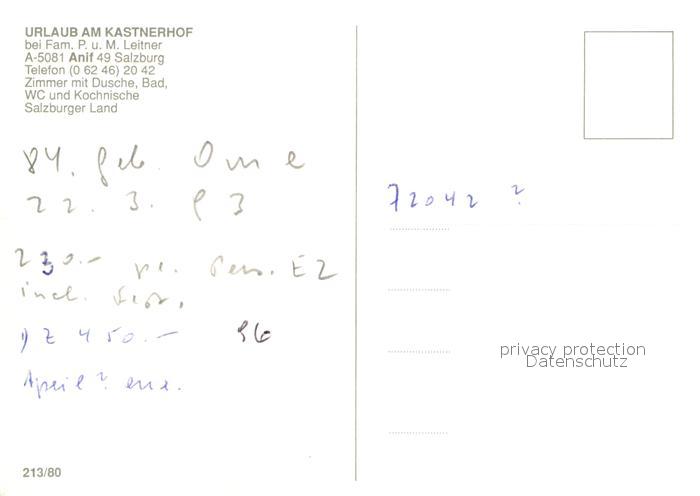 URLAUB AM KASTNERHOF
bei Fam. P. u. M. Leitner
A-5081 Anif 49 Salzburg
Telefon (0 62 46) 20 42
Zimmer mit Dusche, Bad,
WC und Kochnische
Salzburger Land
84. geb. Oma
22. 3. 93
230.- Pers. EZ
incl.
450.- 96
April ?
213/80
72042 ?
privacy protection
Datenschutz